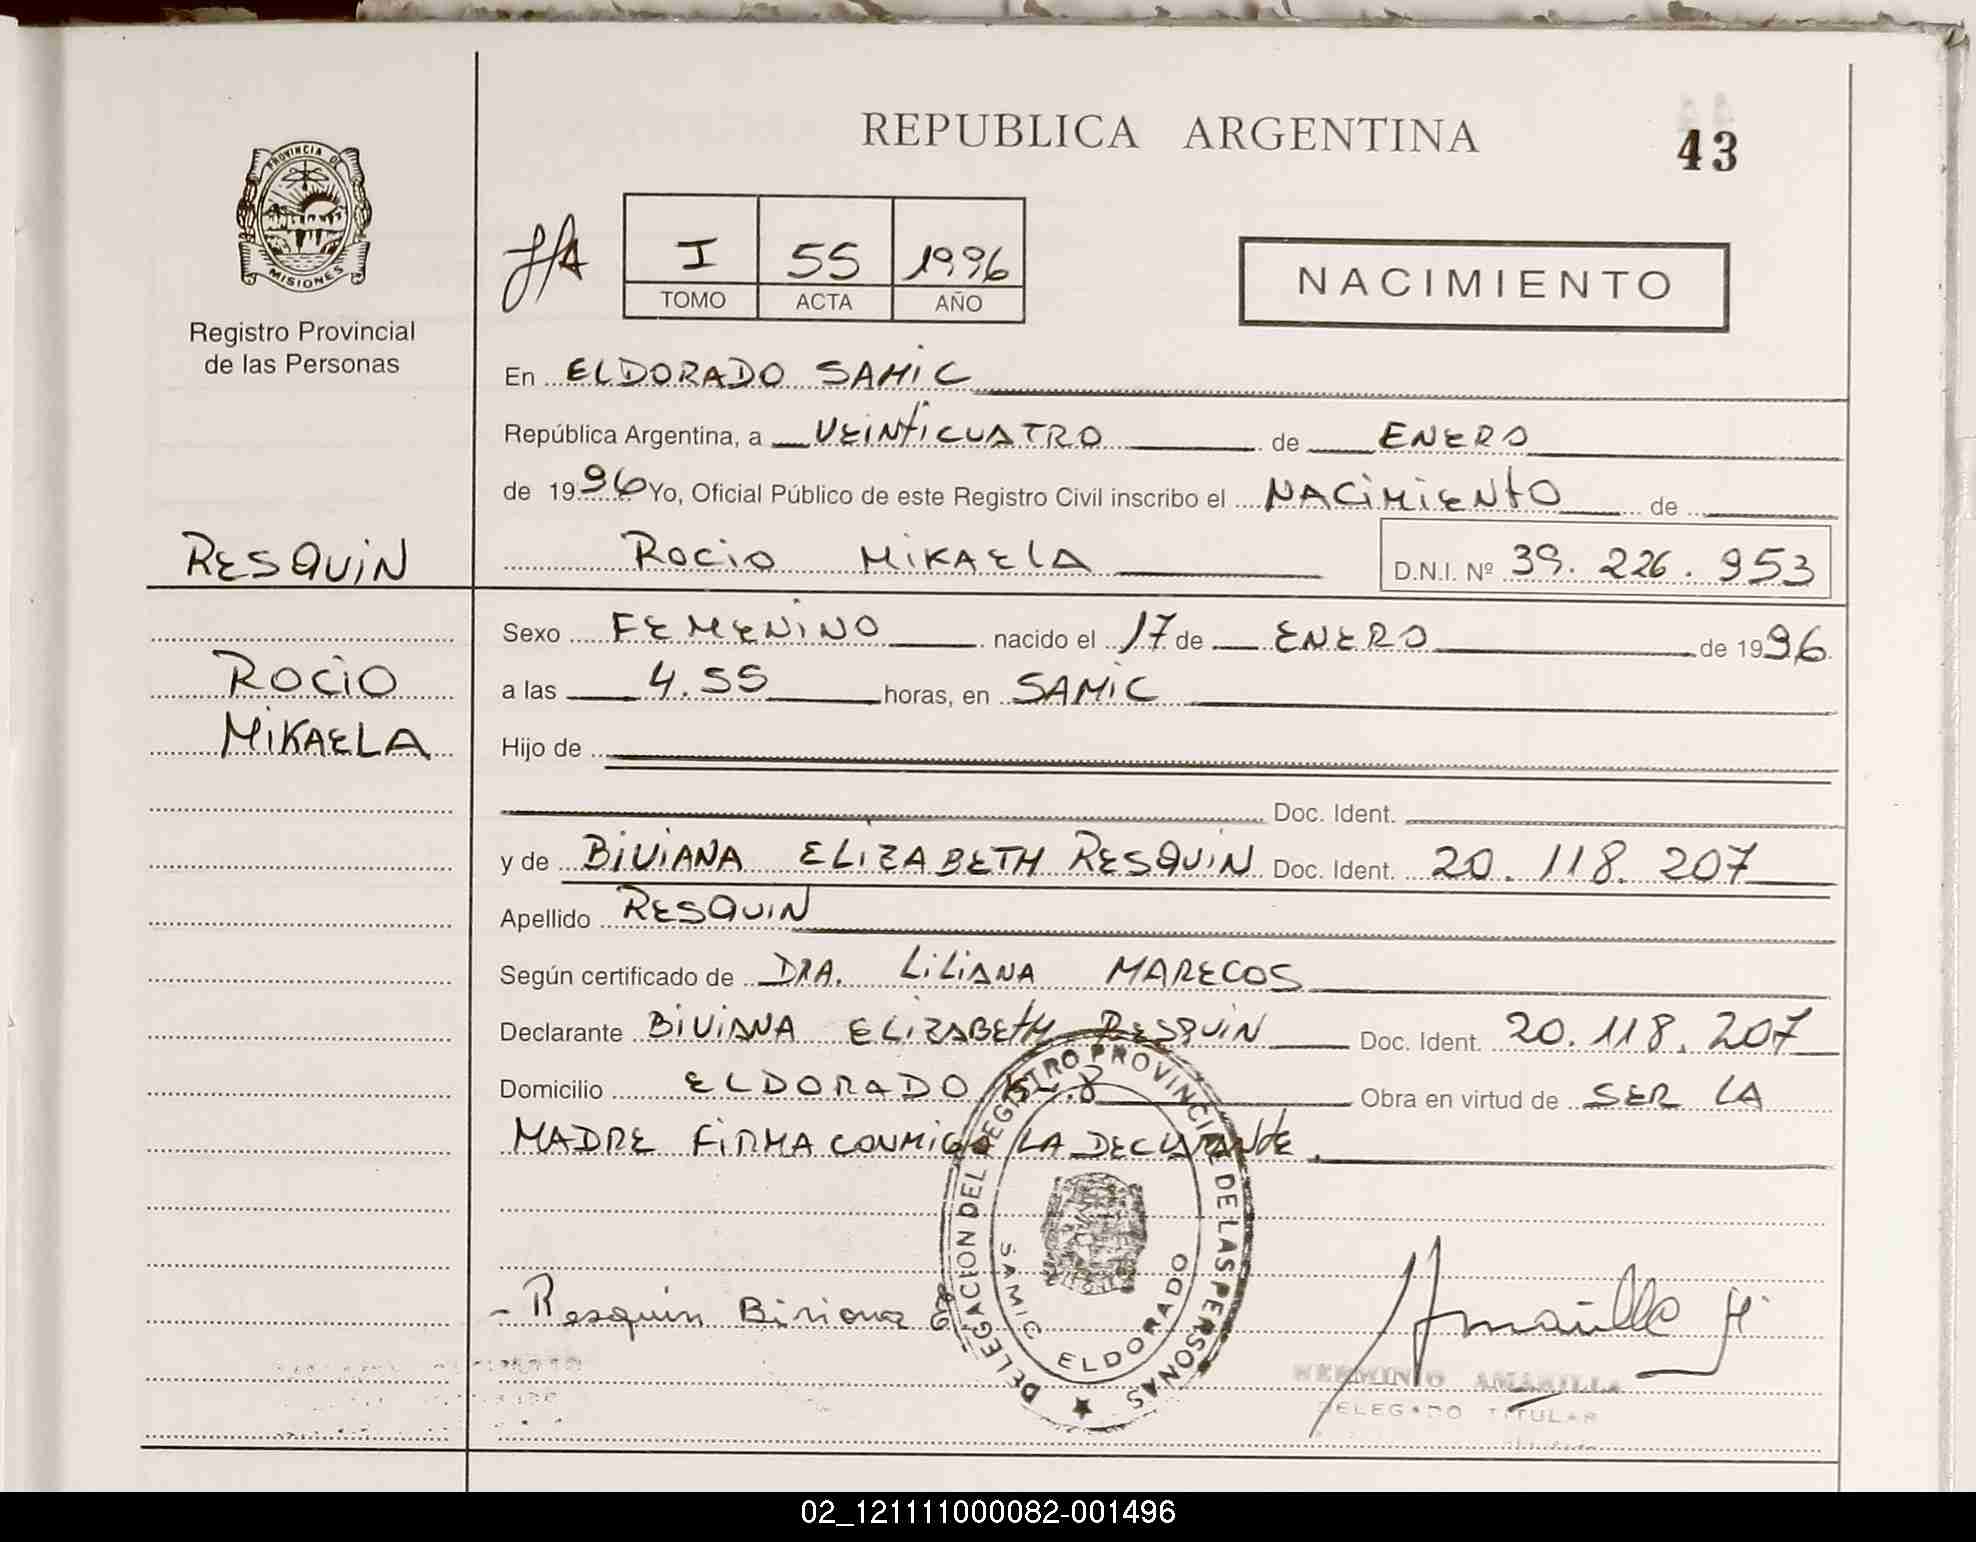 REPUBLICA ARGENTINA
43
PROVINCIA DE
MISIONES
Registro Provincial
de las Personas
I 55 1996
TOMO ACTA AÑO
NACIMIENTO
En ELDORADO SAMIC
República Argentina, a VEINTICUATRO de ENERO
de 1996 Yo, Oficial Público de este Registro Civil inscribo el NACIMIENTO de
RESQUIN
ROCIO MIKAELA D.N.I. Nº 39.226.953
Sexo FEMENINO nacido el 17 de ENERO de 1996
ROCIO
a las 4.55 horas, en SAMIC
MIKAELA
Hijo de
Doc. Ident.
y de BIVIANA ELIZABETH RESQUIN Doc. Ident. 20.118.207
Apellido RESQUIN
Según certificado de DRA. LILIANA MARECOS
Declarante BIVIANA ELIZABETH RESQUIN Doc. Ident. 20.118.207
Domicilio ELDORADO K-.8 Obra en virtud de SER LA
MADRE FIRMA CONMIGO LA DECLARANTE.
DELEGACION DEL REGISTRO PROVINCIAL DE LAS PERSONAS
SAMIC ELDORADO
- Resquin Biviana
Amarilla H.
HERMINIO AMARILLA
DELEGADO TITULAR
02_121111000082-001496